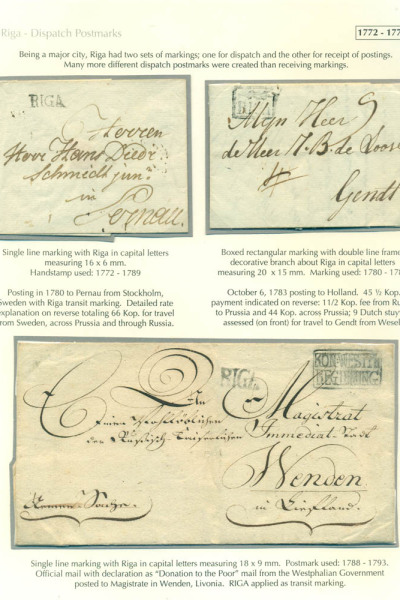 Riga - Dispatch Postmarks
1772 - 177
Being a major city, Riga had two sets of markings; one for dispatch and the other for receipt of postings.
Many more different dispatch postmarks were created than receiving markings.
RIGA
Herren
Herr Hans Died:
Schmidt jun:
in
Pernau.
RIGA
Mijn Heer
de Heer J. B. de Loose
Gendt
Single line marking with Riga in capital letters
measuring 16 x 6 mm.
Handstamp used: 1772 - 1789
Posting in 1780 to Pernau from Stockholm,
Sweden with Riga transit marking. Detailed rate
explanation on reverse totaling 66 Kop. for travel
from Sweden, across Prussia and through Russia.
Boxed rectangular marking with double line frame
decorative branch about Riga in capital letters
measuring 20 x 15 mm. Marking used: 1780 - 178
October 6, 1783 posting to Holland. 45 ½ Kop.
payment indicated on reverse: 11/2 Kop. fee from Ru
to Prussia and 44 Kop. across Prussia; 9 Dutch stuy
assessed (on front) for travel to Gendt from Wesel
RIGA
KON. WESTPH
REGIERUNG
An
Einen Wohllöblichen
den Russisch-Kaiserlichen
Magistrat
Immediat-Stadt
Wenden
in Liefland.
Armen-Sache.
Single line marking with Riga in capital letters measuring 18 x 9 mm. Postmark used: 1788 - 1793.
Official mail with declaration as "Donation to the Poor" mail from the Westphalian Government
posted to Magistrate in Wenden, Livonia. RIGA applied as transit marking.